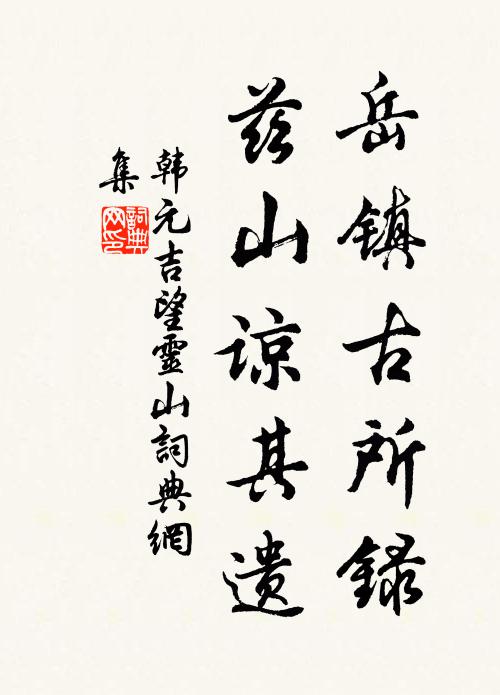 岳镇古所録
兹山谅其遗
韩元吉望靈山詞典網
集
詞典網印